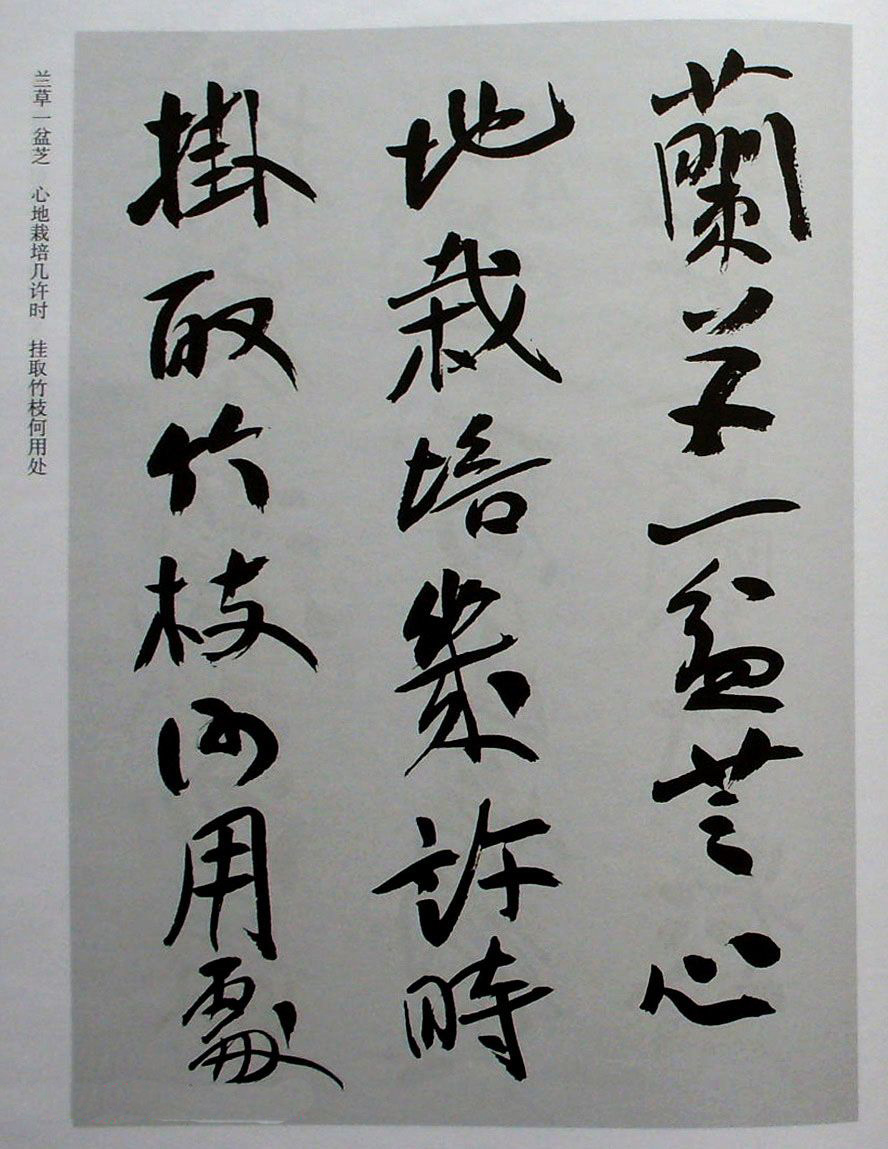 蘭草一盆芝心
地栽培幾許時
掛取竹枝何用處
兰草一盆芝　心地栽培几许时　挂取竹枝何用处